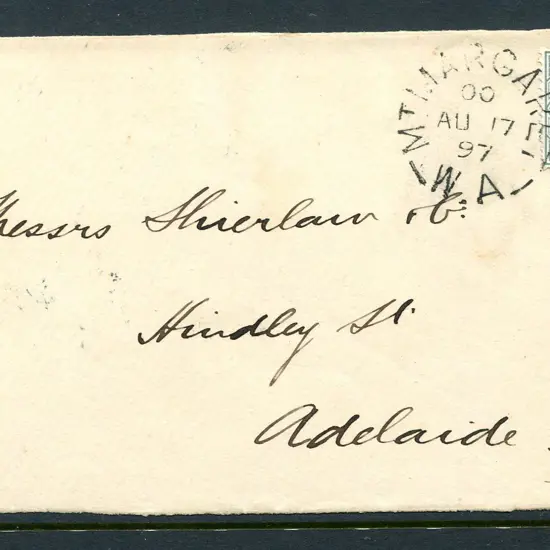 MT MARGARET
00
AU 17
97
W.A
Messrs Shierlaw & Co:
Hindley St
Adelaide